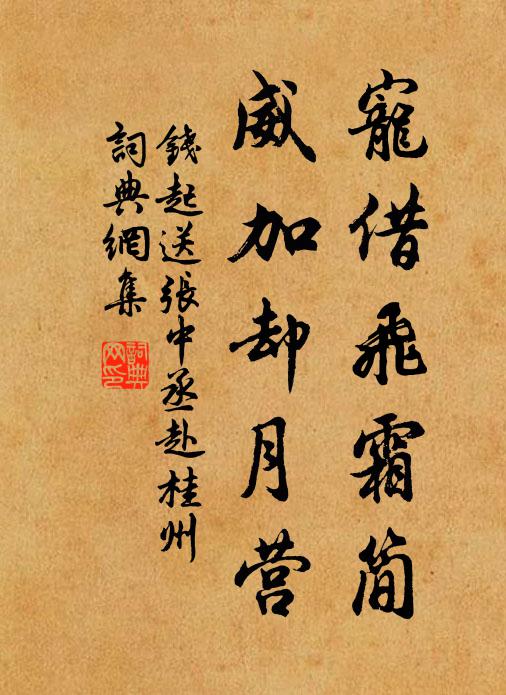 寵借飛霜简
威加却月营
錢起送張中丞赴桂州
詞典網集
詞典网印